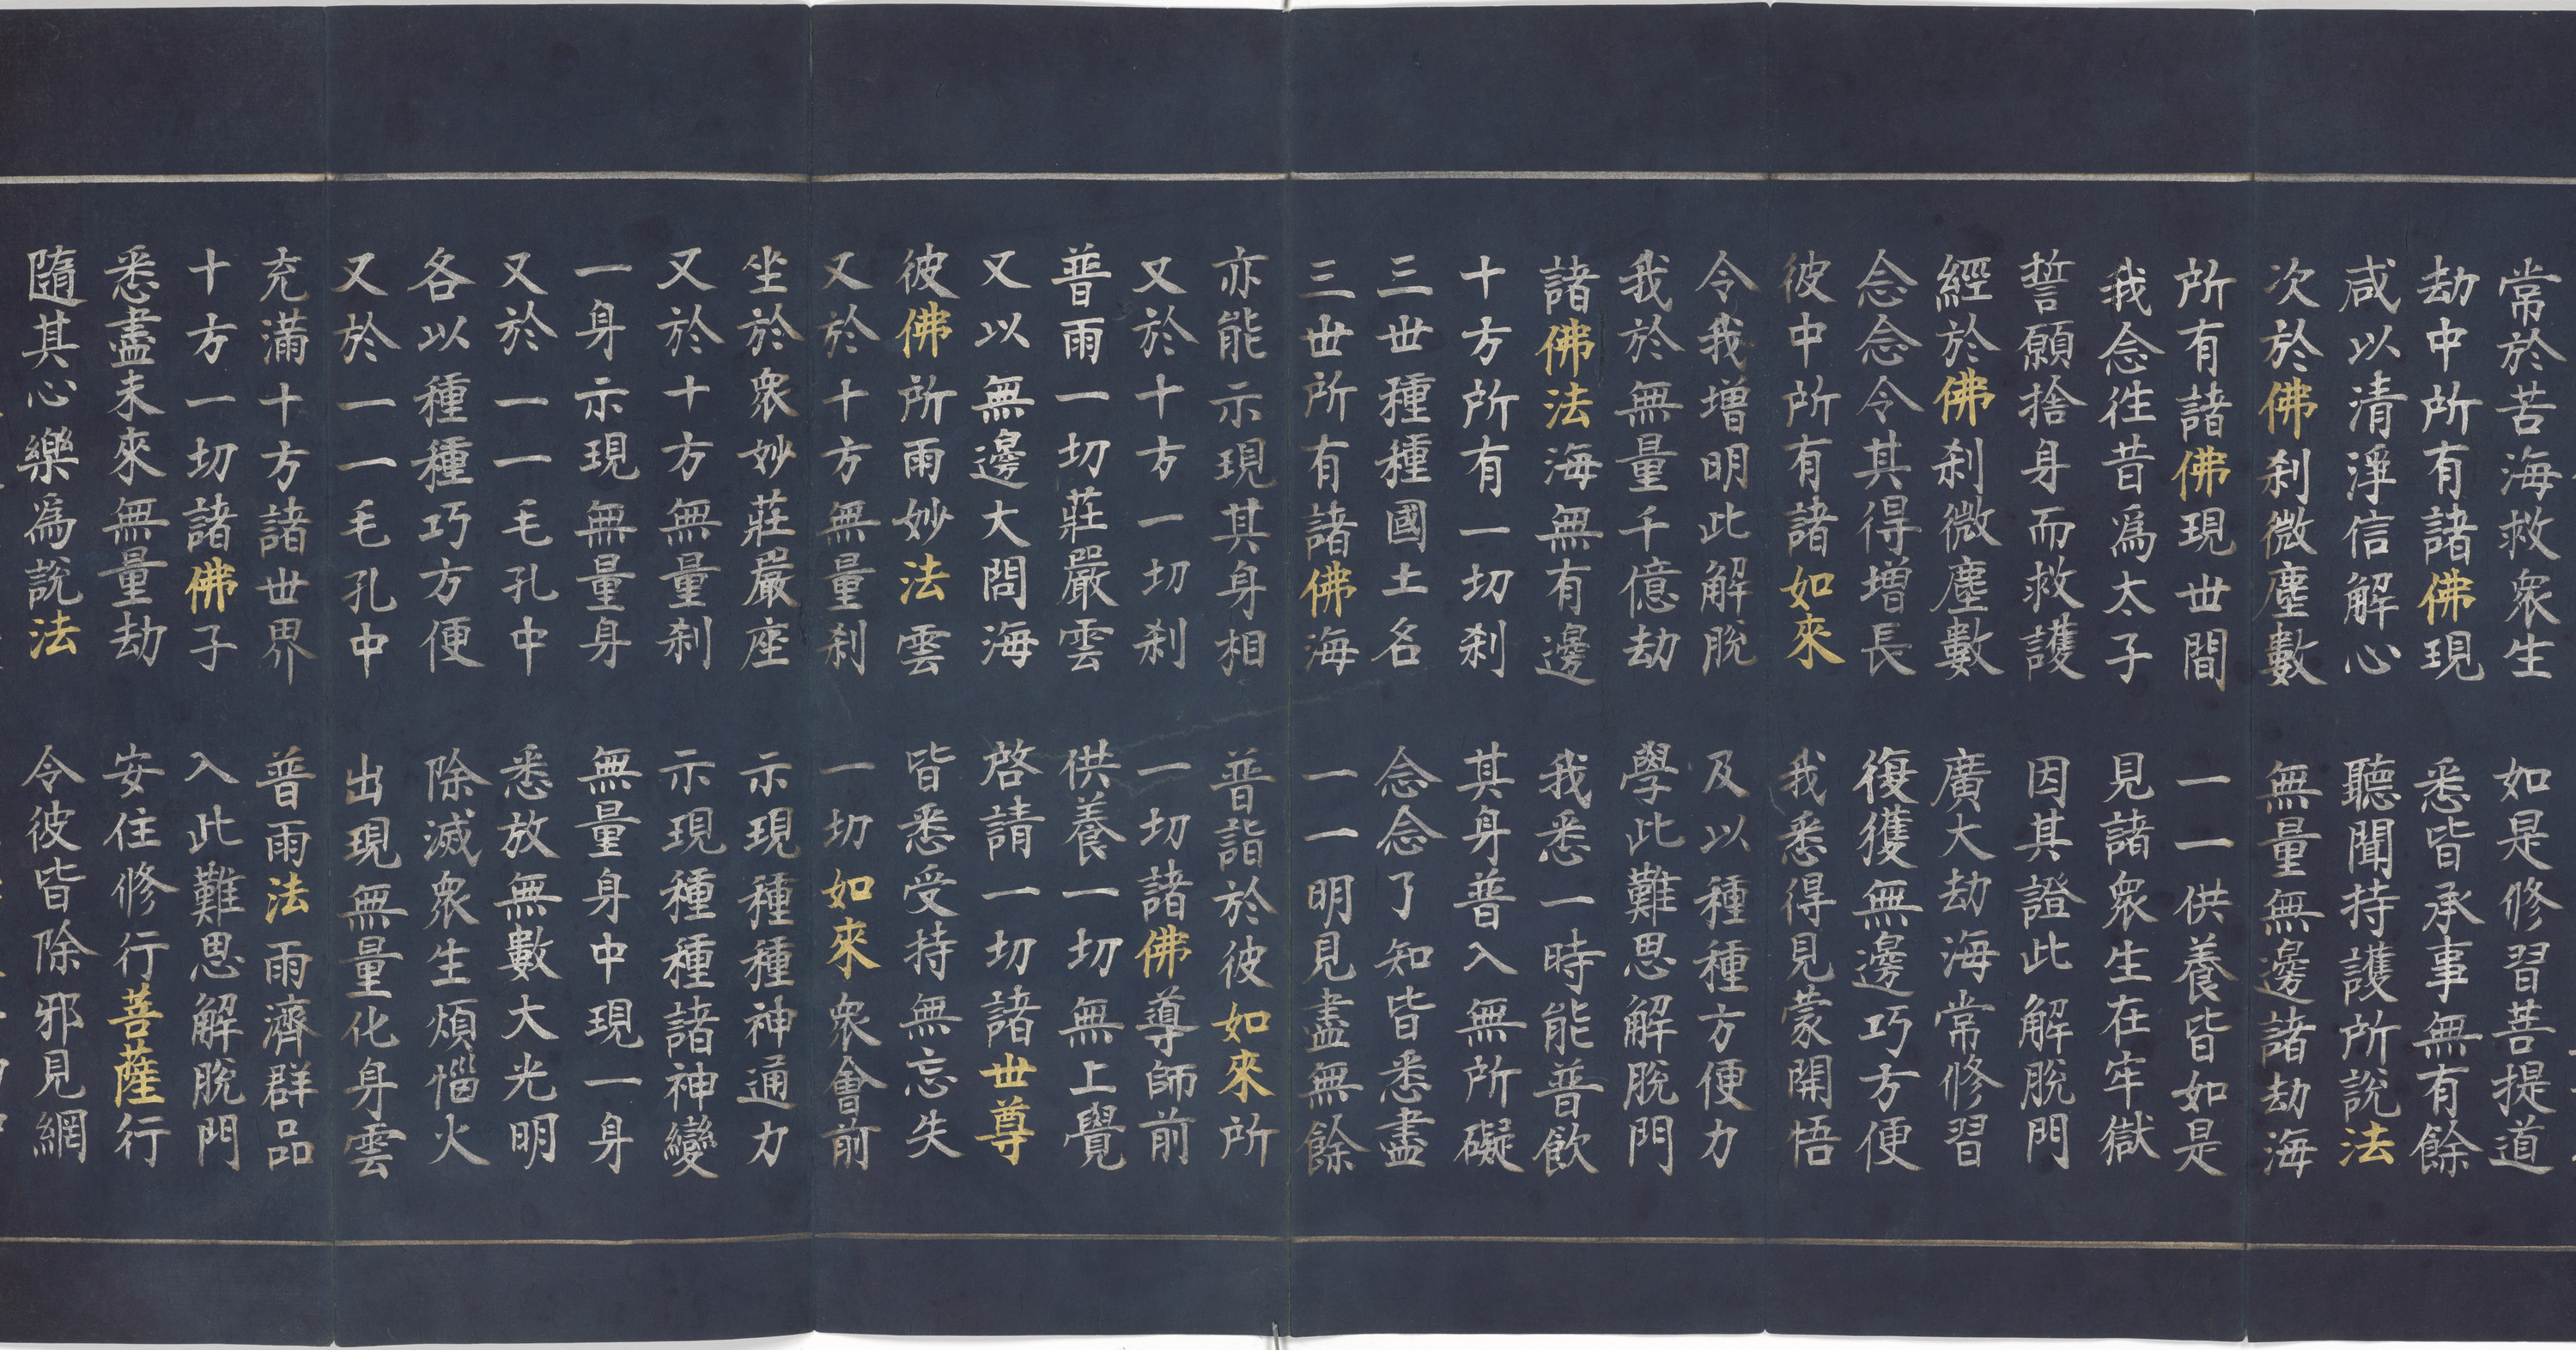 常於苦海救衆生　如是修習菩提道
劫中所有諸佛現　悉皆承事無有餘
咸以清淨信解心　聽聞持護所說法
次於佛刹微塵數　無量無邊諸劫海
所有諸佛現世間　一一供養皆如是
我念往昔爲太子　見諸衆生在牢獄
誓願捨身而救護　因其證此解脫門
經於佛刹微塵數　廣大劫海常修習
念念令其得增長　復獲無邊巧方便
彼中所有諸如來　我悉得見蒙開悟
令我增明此解脫　及以種種方便力
我於無量千億劫　學此難思解脫門
諸佛法海無有邊　我悉一時能普飮
十方所有一切刹　其身普入無所礙
三世種種國土名　念念了知皆悉盡
三世所有諸佛海　一一明見盡無餘
亦能示現其身相　普詣於彼如來所
又於十方一切刹　一切諸佛導師前
普雨一切莊嚴雲　供養一切無上覺
又以無邊大問海　啓請一切諸世尊
彼佛所雨妙法雲　皆悉受持無忘失
又於十方無量刹　一切如來衆會前
坐於衆妙莊嚴座　示現種種神通力
又於十方無量刹　示現種種諸神變
一身示現無量身　無量身中現一身
又於一一毛孔中　悉放無數大光明
各以種種巧方便　除滅衆生煩惱火
又於一一毛孔中　出現無量化身雲
充滿十方諸世界　普雨法雨濟群品
十方一切諸佛子　入此難思解脫門
悉盡未來無量劫　安住修行菩薩行
隨其心樂爲說法　令彼皆除邪見網